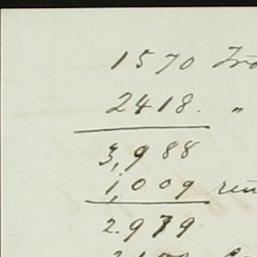 1570
2418. "
3,988
1,009
2.979